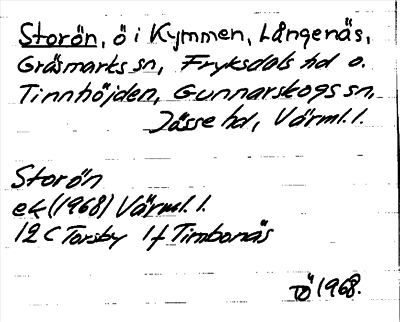 Storön, ö i Kymmen, Långenäs,
Gräsmarks sn, Fryksdals hd o.
Tinnhöjden, Gunnarskogs sn,
Jösse hd, Värml. l.
Storön
ek (1968) Värml. l.
12 C Torsby 1 f Timbonäs
TÖ 1968.